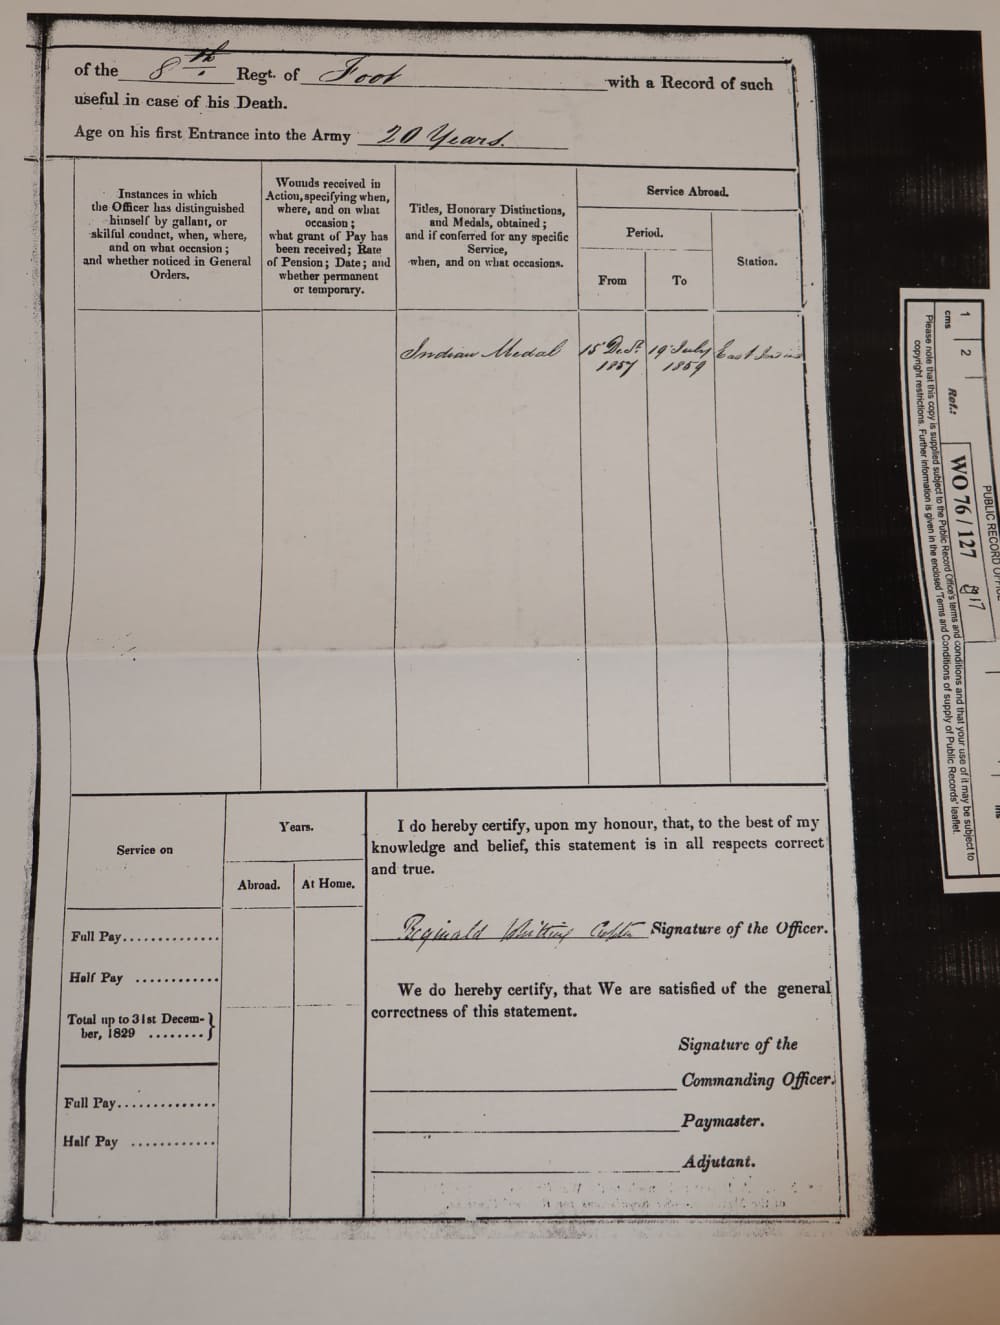 of the 8th Regt. of Foot with a Record of such
useful in case of his Death.
Age on his first Entrance into the Army 20 Years.
Instances in which
the Officer has distinguished
himself by gallant, or
skilful conduct, when, where,
and on what occasion;
and whether noticed in General
Orders.
Wounds received in
Action, specifying when,
where, and on what
occasion;
what grant of Pay has
been received; Rate
of Pension; Date; and
whether permanent
or temporary.
Titles, Honorary Distinctions,
and Medals, obtained;
and if conferred for any specific
Service,
when, and on what occasions.
Service Abroad.
Period.
From
To
Station.
Indian Medal
15 Decr.
1857
19 July
1859
East Indies
Service on
Years.
Abroad.
At Home.
Full Pay..............
Half Pay ............
Total up to 31st Decem-}
ber, 1829 ........}
Full Pay..............
Half Pay ............
I do hereby certify, upon my honour, that, to the best of my
knowledge and belief, this statement is in all respects correct
and true.
Reginald Whitting Signature of the Officer.
We do hereby certify, that We are satisfied of the general
correctness of this statement.
Signature of the
Commanding Officer.
Paymaster.
Adjutant.
PUBLIC RECORD OFFICE
1 2
cms
Ref.:
WO 76/127
Please note that this copy is supplied subject to the Public Record Office's terms and conditions and that your use of it may be subject to
copyright restrictions. Further information is given in the enclosed 'Terms and Conditions of supply of Public Records' leaflet.